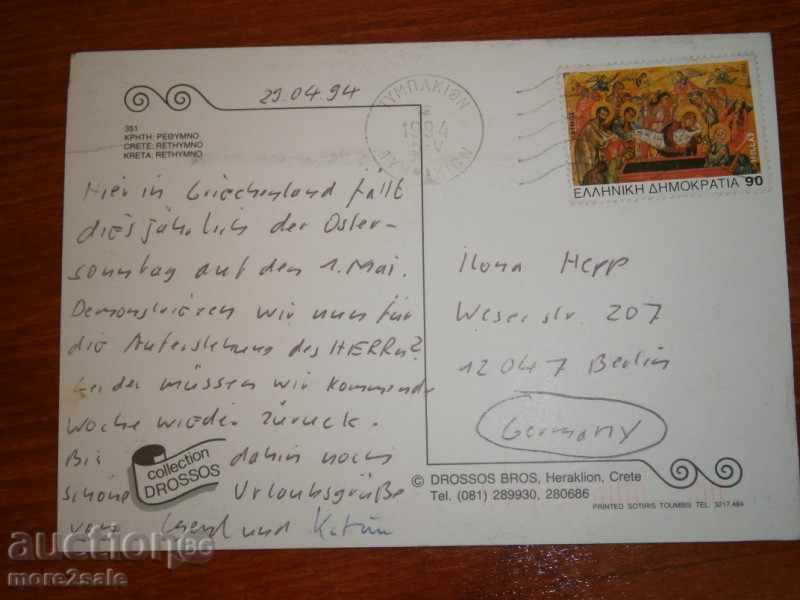 29.04.94
351
ΚΡΗΤΗ: ΡΕΘΥΜΝΟ
CRETE: RETHYMNO
KRETA: RETHYMNO
Hier in Griechenland fällt
diesjährlich der Oster-
sonntag auf den 1. Mai.
Demonstrieren wir nun für
die Auferstehung des HERRn?
Leider müssen wir kommende
Woche wieder zurück.
Bis dahin noch
schöne Urlaubsgrüße
von und Katrin
collection
DROSSOS
1994
ΕΛΛΗΝΙΚΗ ΔΗΜΟΚΡΑΤΙΑ 90
HELLAS
Ilona Hepp
Weserstr. 207
12047 Berlin
Germany
© DROSSOS BROS, Heraklion, Crete
Tel. (081) 289930, 280686
PRINTED SOTIRIS TOUMBIS TEL. 3217.484
auction86
more2sale